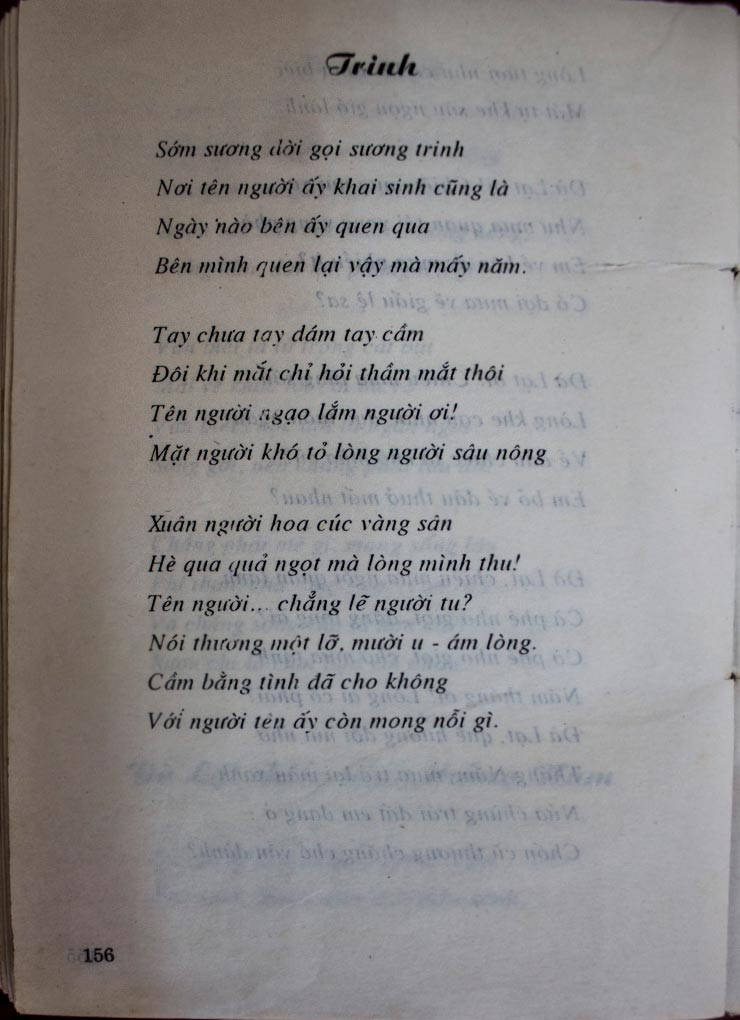 Trinh
Sớm sương dời gọi sương trinh
Nơi tên người ấy khai sinh cũng là
Ngày nào bên ấy quen qua
Bên mình quen lại vậy mà mấy năm.
Tay chưa tay dám tay cầm
Đôi khi mắt chỉ hỏi thầm mắt thôi
Tên người ngạo lắm người ơi!
Mặt người khó tỏ lòng người sâu nông
Xuân người hoa cúc vàng sân
Hè qua quả ngọt mà lòng mình thu!
Tên người... chẳng lẽ người tu?
Nói thương một lỡ, mười u - ám lòng.
Cầm bằng tình đã cho không
Với người tên ấy còn mong nỗi gì.
156